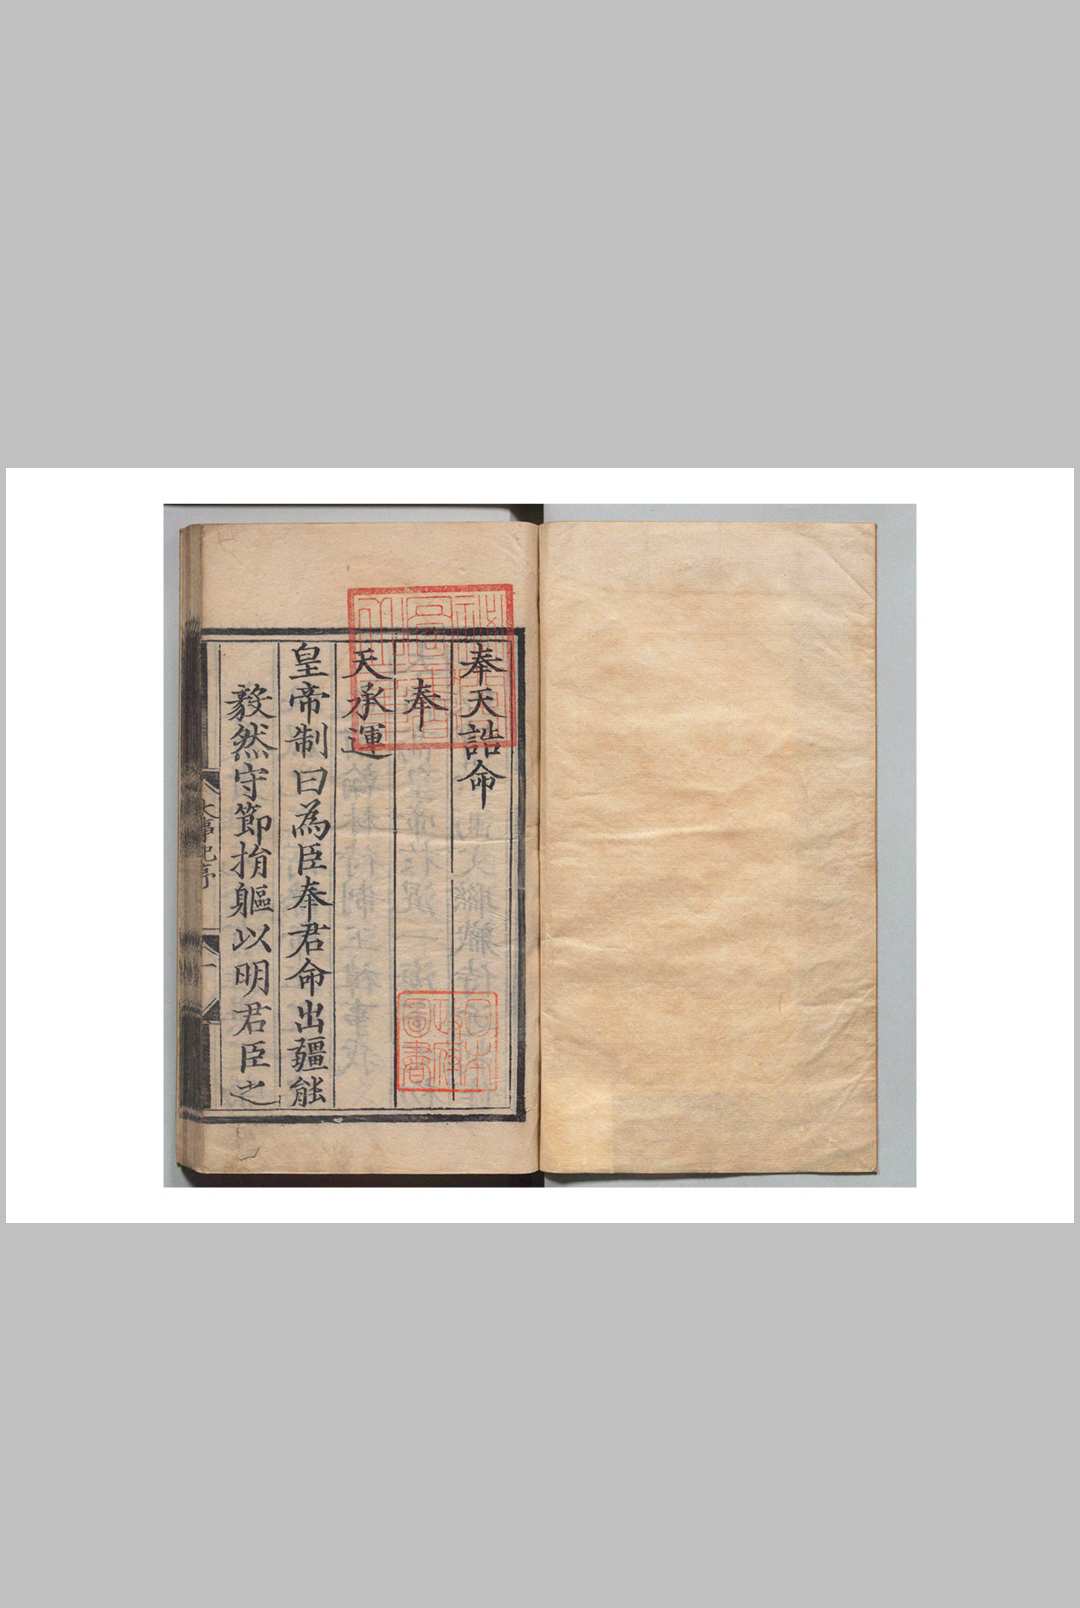 奉天誥命
奉
天承運
皇帝制曰為臣奉君命出疆能
毅然守節捐軀以明君臣之
大事記序
一
日本政府圖書